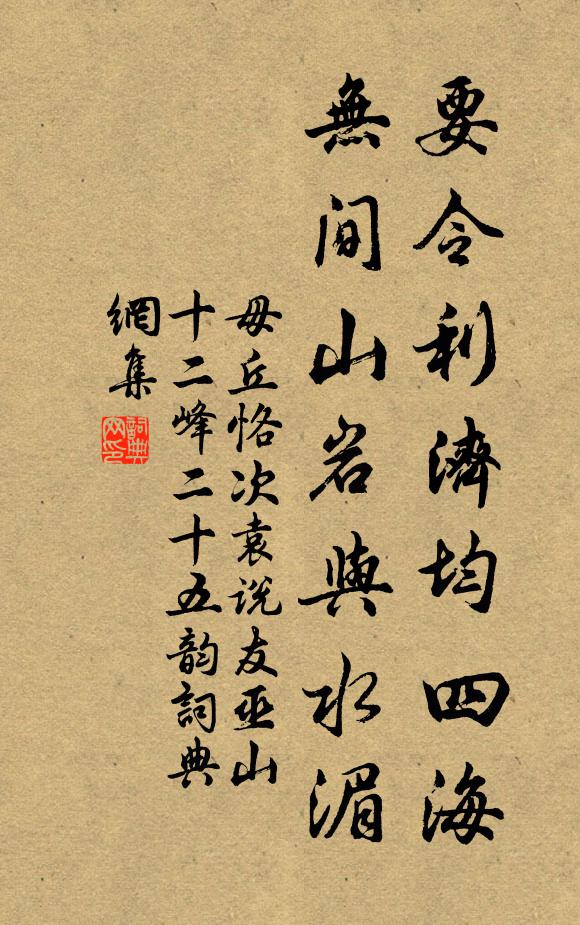 要令利濟均四海
無間山岩與水湄
毋丘恪次袁說友巫山
十二峰二十五韵詞典
網集
詞典网印